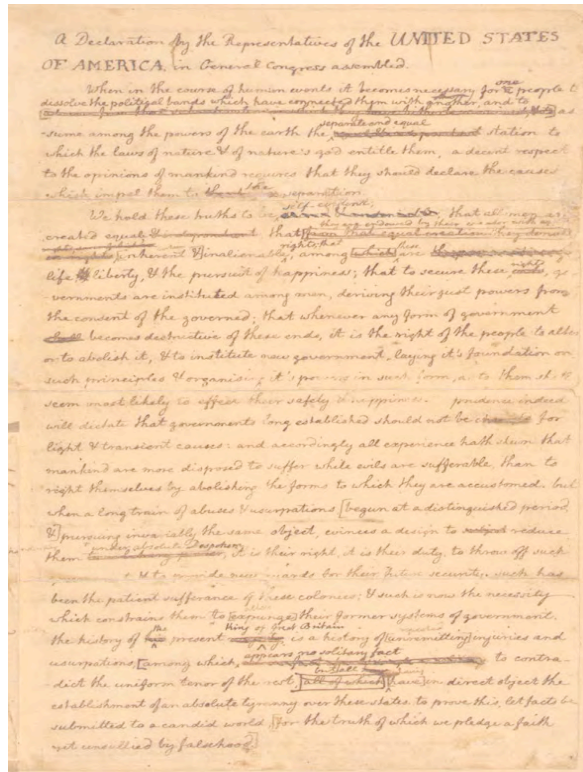 A Declaration by the Representatives of the UNITED STATES
OF AMERICA, in General Congress assembled.
When in the course of human events it becomes necessary for one people to
dissolve the political bands which have connected them with another, and to as
separate and equal
sume among the powers of the earth the station to
which the laws of nature & of nature's god entitle them, a decent respect
to the opinions of mankind requires that they should declare the causes
which impel them to the separation.
self-evident,
We hold these truths to be that all men are
they are endowed by their creator with
created equal & that [from that equal creation they
rights; that these
[inherent &] inalienable among [which] are
rights
life liberty, & the pursuit of happiness; that to secure these go
vernments are instituted among men, deriving their just powers from
the consent of the governed; that whenever any form of government
becomes destructive of these ends, it is the right of the people to alter
or to abolish it, & to institute new government, laying it's foundation on
such principles & organising it's powers in such form, as to them shall
seem most likely to effect their safety & happiness. prudence indeed
will dictate that governments long established should not be for
light & transient causes: and accordingly all experience hath shewn that
mankind are more disposed to suffer while evils are sufferable, than to
right themselves by abolishing the forms to which they are accustomed. but
when a long train of abuses & usurpations [begun at a distinguished period,
&] pursuing invariably the same object, evinces a design to reduce
under absolute Despotism
them it is their right, it is their duty, to throw off such
& to provide new guards for their future security. such has
been the patient sufferance of these colonies; & such is now the necessity
which constrains them to [expunge] their former systems of government.
the King of Great Britain
the history of present is a history of [unremitting] injuries and
appears no solitary fact
usurpations, [among which, to contra-
but all
dict the uniform tenor of the rest, [all of which] [have] in direct object the
establishment of an absolute tyranny over these states. to prove this, let facts be
submitted to a candid world, [for the truth of which we pledge a faith
yet unsullied by falsehood]